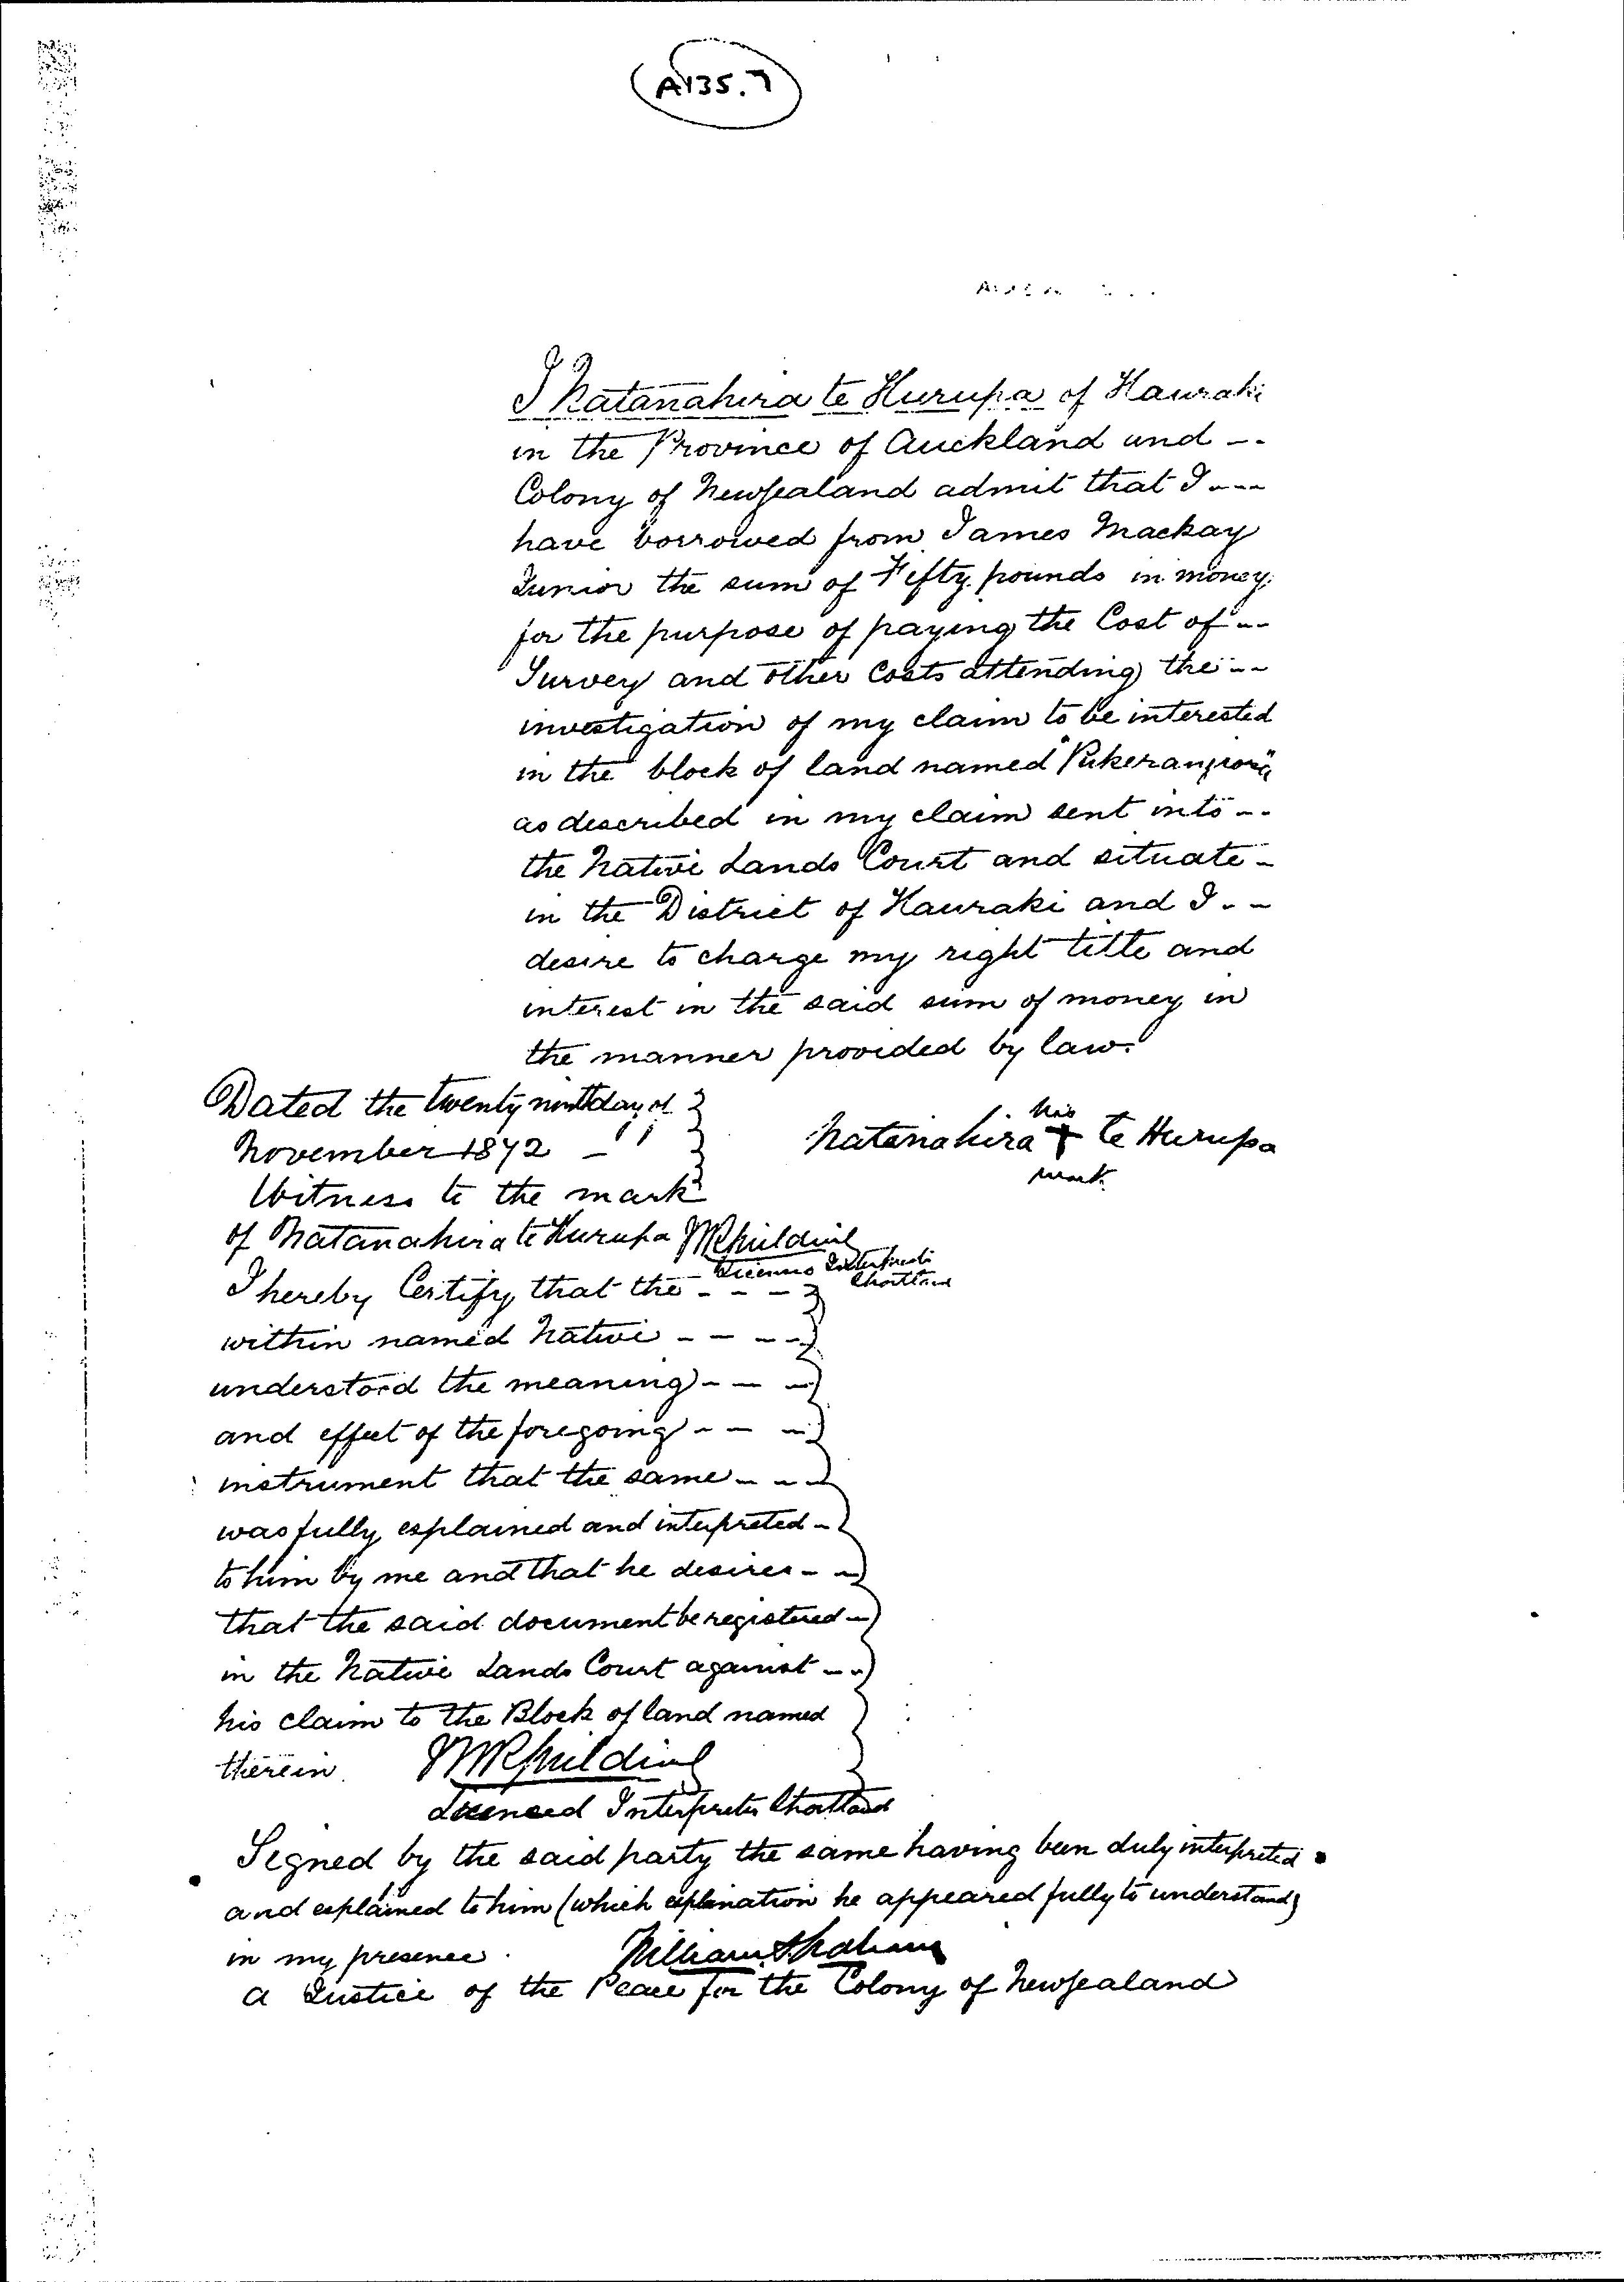 A135.7
I Natanahira te Hurupa of Hauraki
in the Province of Auckland and --
Colony of New Zealand admit that I ---
have borrowed from James Mackay
Junior the sum of Fifty pounds in money
for the purpose of paying the Cost of --
Survey and other Costs attending the --
investigation of my claim to be interested
in the block of land named
as described in my claim sent into --
the Native Lands Court and situate -
in the District of Hauraki and I --
desire to charge my right title and
interest in the said sum of money in
the manner provided by law.
Dated the twenty ninth day of
November 1872 -
his
Natanahira + te Hurupa
mark
Witness to the mark
of Natanahira te Hurupa
Interpreter
I hereby Certify that the - - -
within named Native - - - -
understood the meaning - - -
and effect of the foregoing - - -
instrument that the same - - -
was fully explained and interpreted -
to him by me and that he desires - -
that the said document be registered -
in the Native Lands Court against - -
his claim to the Block of land named
therein
Licensed Interpreter Shortland
Signed by the said party the same having been duly interpreted
and explained to him (which explanation he appeared fully to understand)
in my presence.
William
a Justice of the Peace for the Colony of New Zealand